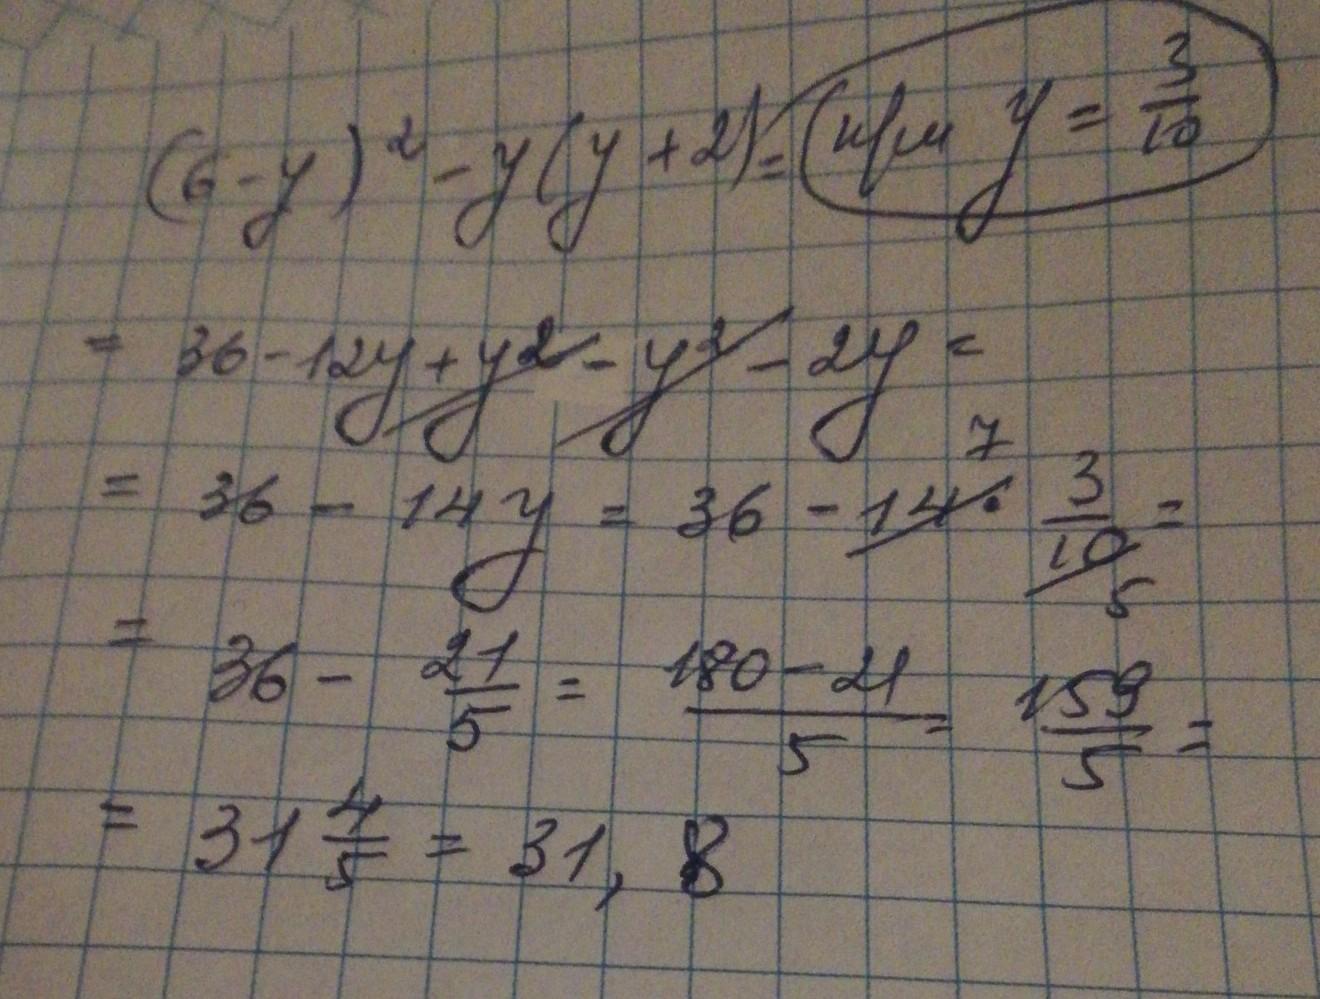 (6-y)² - y(y+2) = (при y = 3/10
= 36 - 12y + y² - y² - 2y =
= 36 - 14y = 36 - 14 7 · 3/10 5 =
= 36 - 21/5 = 180-21/5 = 159/5 =
= 31 4/5 = 31,8